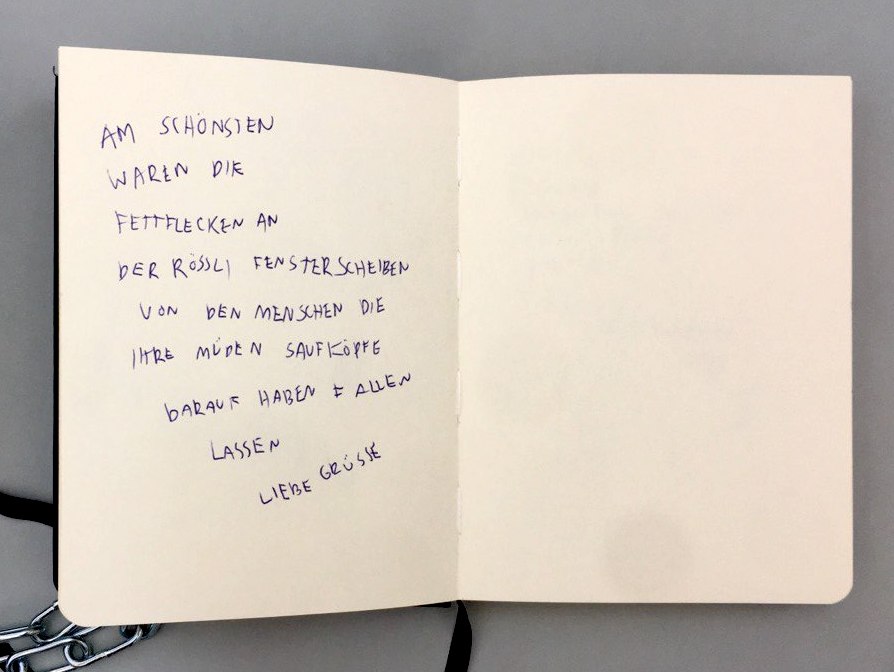 AM SCHÖNSTEN
WAREN DIE
FETTFLECKEN AN
DER RÖSSLI FENSTERSCHEIBEN
VON DEN MENSCHEN DIE
IHRE MÜDEN SAUFKÖPFE
DARAUF HABEN FALLEN
LASSEN
LIEBE GRÜSSE